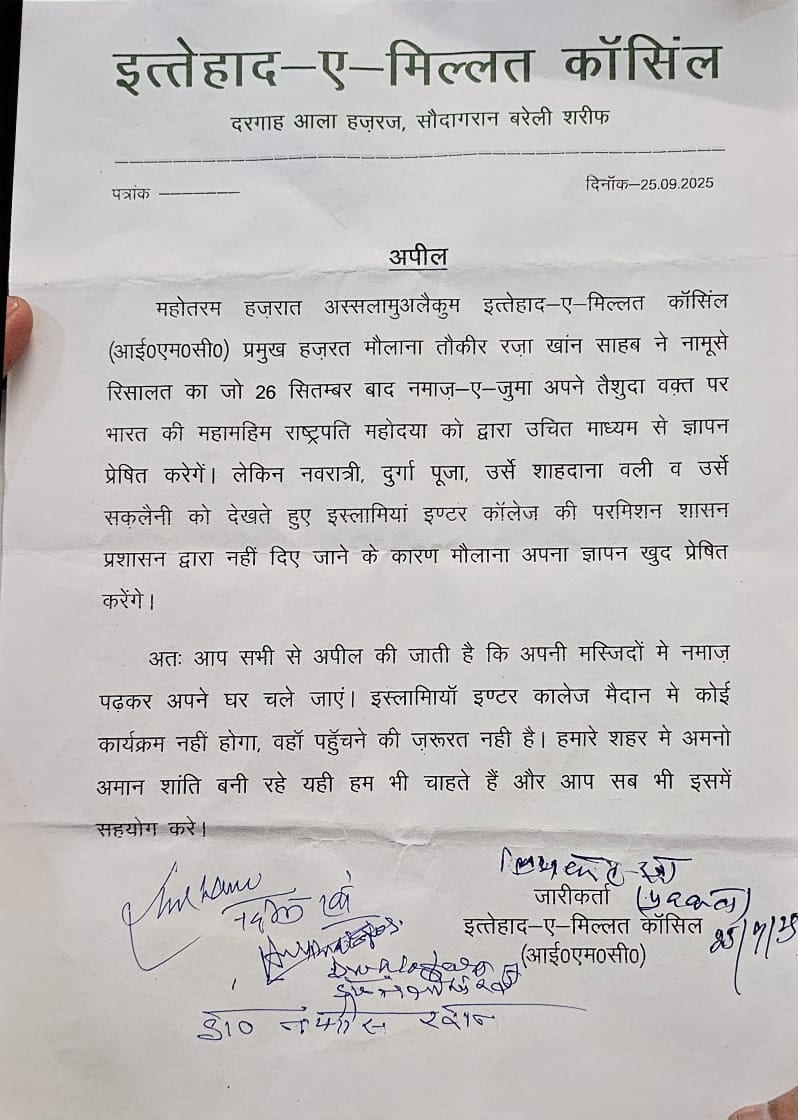 इत्तेहाद–ए–मिल्लत कॉसिंल
दरगाह आला हज़रज, सौदागरान बरेली शरीफ
पत्रांक –––––––
दिनॉक–25.09.2025
अपील
महोतरम हज़रात अस्सलामुअलैकुम इत्तेहाद–ए–मिल्लत कॉसिंल
(आई0एम0सी0) प्रमुख हज़रत मौलाना तौकीर रज़ा खांन साहब ने नामूसे
रिसालत का जो 26 सितम्बर बाद नमाज़–ए–जुमा अपने तैशुदा वक़्त पर
भारत की महामहिम राष्ट्रपति महोदया को द्वारा उचित माध्यम से ज्ञापन
प्रेषित करेगें। लेकिन नवरात्री, दुर्गा पूजा, उर्से शाहदाना वली व उर्से
सक़लैनी को देखते हुए इस्लामियां इण्टर कॉलेज की परमिशन शासन
प्रशासन द्वारा नहीं दिए जाने के कारण मौलाना अपना ज्ञापन खुद प्रेषित
करेंगे।
अतः आप सभी से अपील की जाती है कि अपनी मस्जिदों मे नमाज़
पढ़कर अपने घर चले जाएं। इस्लामिायॉ इण्टर कालेज मैदान मे कोई
कार्यक्रम नहीं होगा, वहॉ पहुँचने की ज़रूरत नही है। हमारे शहर मे अमनो
अमान शांति बनी रहे यही हम भी चाहते हैं और आप सब भी इसमें
सहयोग करे।
जारीकर्ता
इत्तेहाद–ए–मिल्लत कॉसिंल
(आई0एम0सी0)
डा0 नफीस